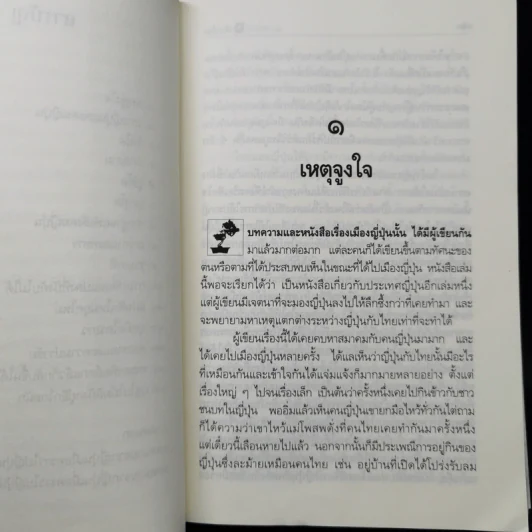 ๑
เหตุจูงใจ
บทความและหนังสือเรื่องเมืองญี่ปุ่นนั้น ได้มีผู้เขียนกัน
มาแล้วมากต่อมาก แต่ละคนก็ได้เขียนขึ้นตามทัศนะของ
ตนหรือตามที่ได้ประสบพบเห็นในขณะที่ได้ไปเมืองญี่ปุ่น หนังสือเล่ม
นี้พอจะเรียกได้ว่า เป็นหนังสือเกี่ยวกับประเทศญี่ปุ่นอีกเล่มหนึ่ง
แต่ผู้เขียนมีเจตนาที่จะมองญี่ปุ่นลงไปให้ลึกซึ้งกว่าที่เคยทำมา และ
จะพยายามหาเหตุแตกต่างระหว่างญี่ปุ่นกับไทยเท่าที่จะทำได้
ผู้เขียนเรื่องนี้ได้เคยคบหาสมาคมกับคนญี่ปุ่นมามาก และ
ได้เคยไปเมืองญี่ปุ่นหลายครั้ง ได้แลเห็นว่าญี่ปุ่นกับไทยนั้นมีอะไร
ที่เหมือนกันและเข้าใจกันได้แจ่มแจ้งก็มากมายหลายอย่าง ตั้งแต่
เรื่องใหญ่ ๆ ไปจนเรื่องเล็ก เป็นต้นว่าครั้งหนึ่งเคยไปกินข้าวกับชาว
ชนบทในญี่ปุ่น พออิ่มแล้วเห็นคนญี่ปุ่นเขายกมือไหว้ทั่วกันไต่ถาม
ก็ได้ความว่าเขาไหว้แม่โพสพดังที่คนไทยเคยทำกันมาครั้งหนึ่ง
แต่เดี๋ยวนี้เลือนหายไปแล้ว นอกจากนั้นก็มีประเพณีการอยู่กินของ
ญี่ปุ่นซึ่งละม้ายเหมือนคนไทย เช่น อยู่บ้านที่เปิดได้โปร่งรับลม